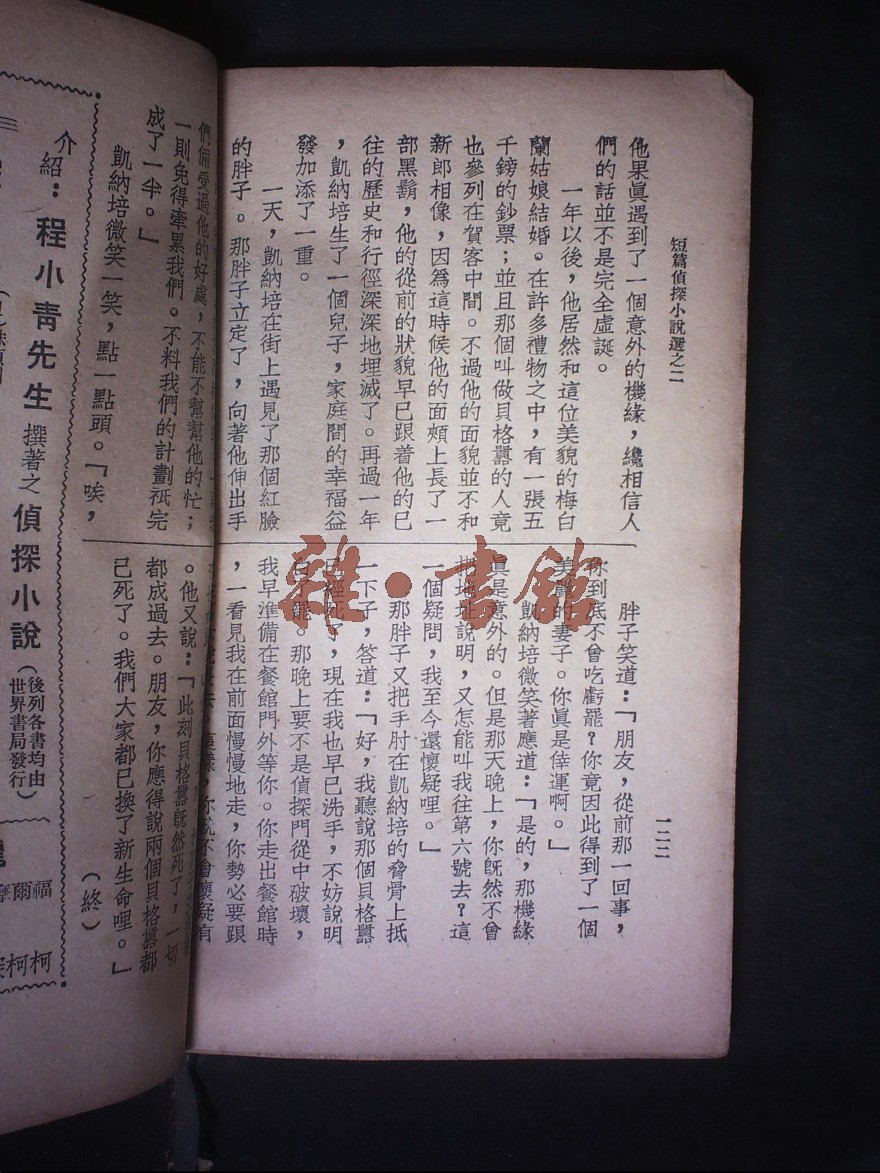 短篇偵探小說選之二
一二二
他果眞遇到了一個意外的機緣，纔相信人
們的話並不是完全虛誕。
一年以後，他居然和這位美貌的梅白
蘭姑娘結婚。在許多禮物之中，有一張五
千鎊的鈔票；並且那個叫做貝格囂的人竟
也參列在賀客中間。不過他的面貌並不和
新郎相像，因爲這時候他的面頰上長了一
部黑鬚，他的從前的狀貌早已跟着他的已
往的歷史和行徑深深地埋滅了。再過一年
，凱納培生了一個兒子，家庭間的幸福益
發加添了一重。
一天，凱納培在街上遇見了那個紅臉
的胖子。那胖子立定了，向著他伸出手
們倆受過他的好處，不能不幫幫他的忙；
一則免得牽累我們。不料我們的計劃祇完
成了一半。」
凱納培微笑一笑，點一點頭。「唉，
胖子笑道：「朋友，從前那一回事，
你到底不曾吃虧罷？你竟因此得到了一個
美麗的妻子。你眞是倖運啊。」
凱納培微笑著應道：「是的，那機緣
眞是意外的。但是那天晚上，你旣然不曾
地說明，又怎能叫我往第六號去？這
一個疑問，我至今還懷疑哩。」
那胖子又把手肘在凱納培的脅骨上抵
一下子，答道：「好，我聽說那個貝格囂
已經死了，現在我也早已洗手，不妨說明
白了罷。那晚上要不是偵探門從中破壞，
我早準備在餐館門外等你。你走出餐館時
，一看見我在前面慢慢地走，你勢必要跟
你就不會懷疑有
。他又說：「此刻貝格囂旣然死了，一切
都成過去。朋友，你應得說兩個貝格囂都
己死了。我們大家都已換了新生命哩。」
（終）
介紹：程小青先生撰著之偵探小說（後列各書均由世界書局發行）
摩爾福
柯柯
雜·書館